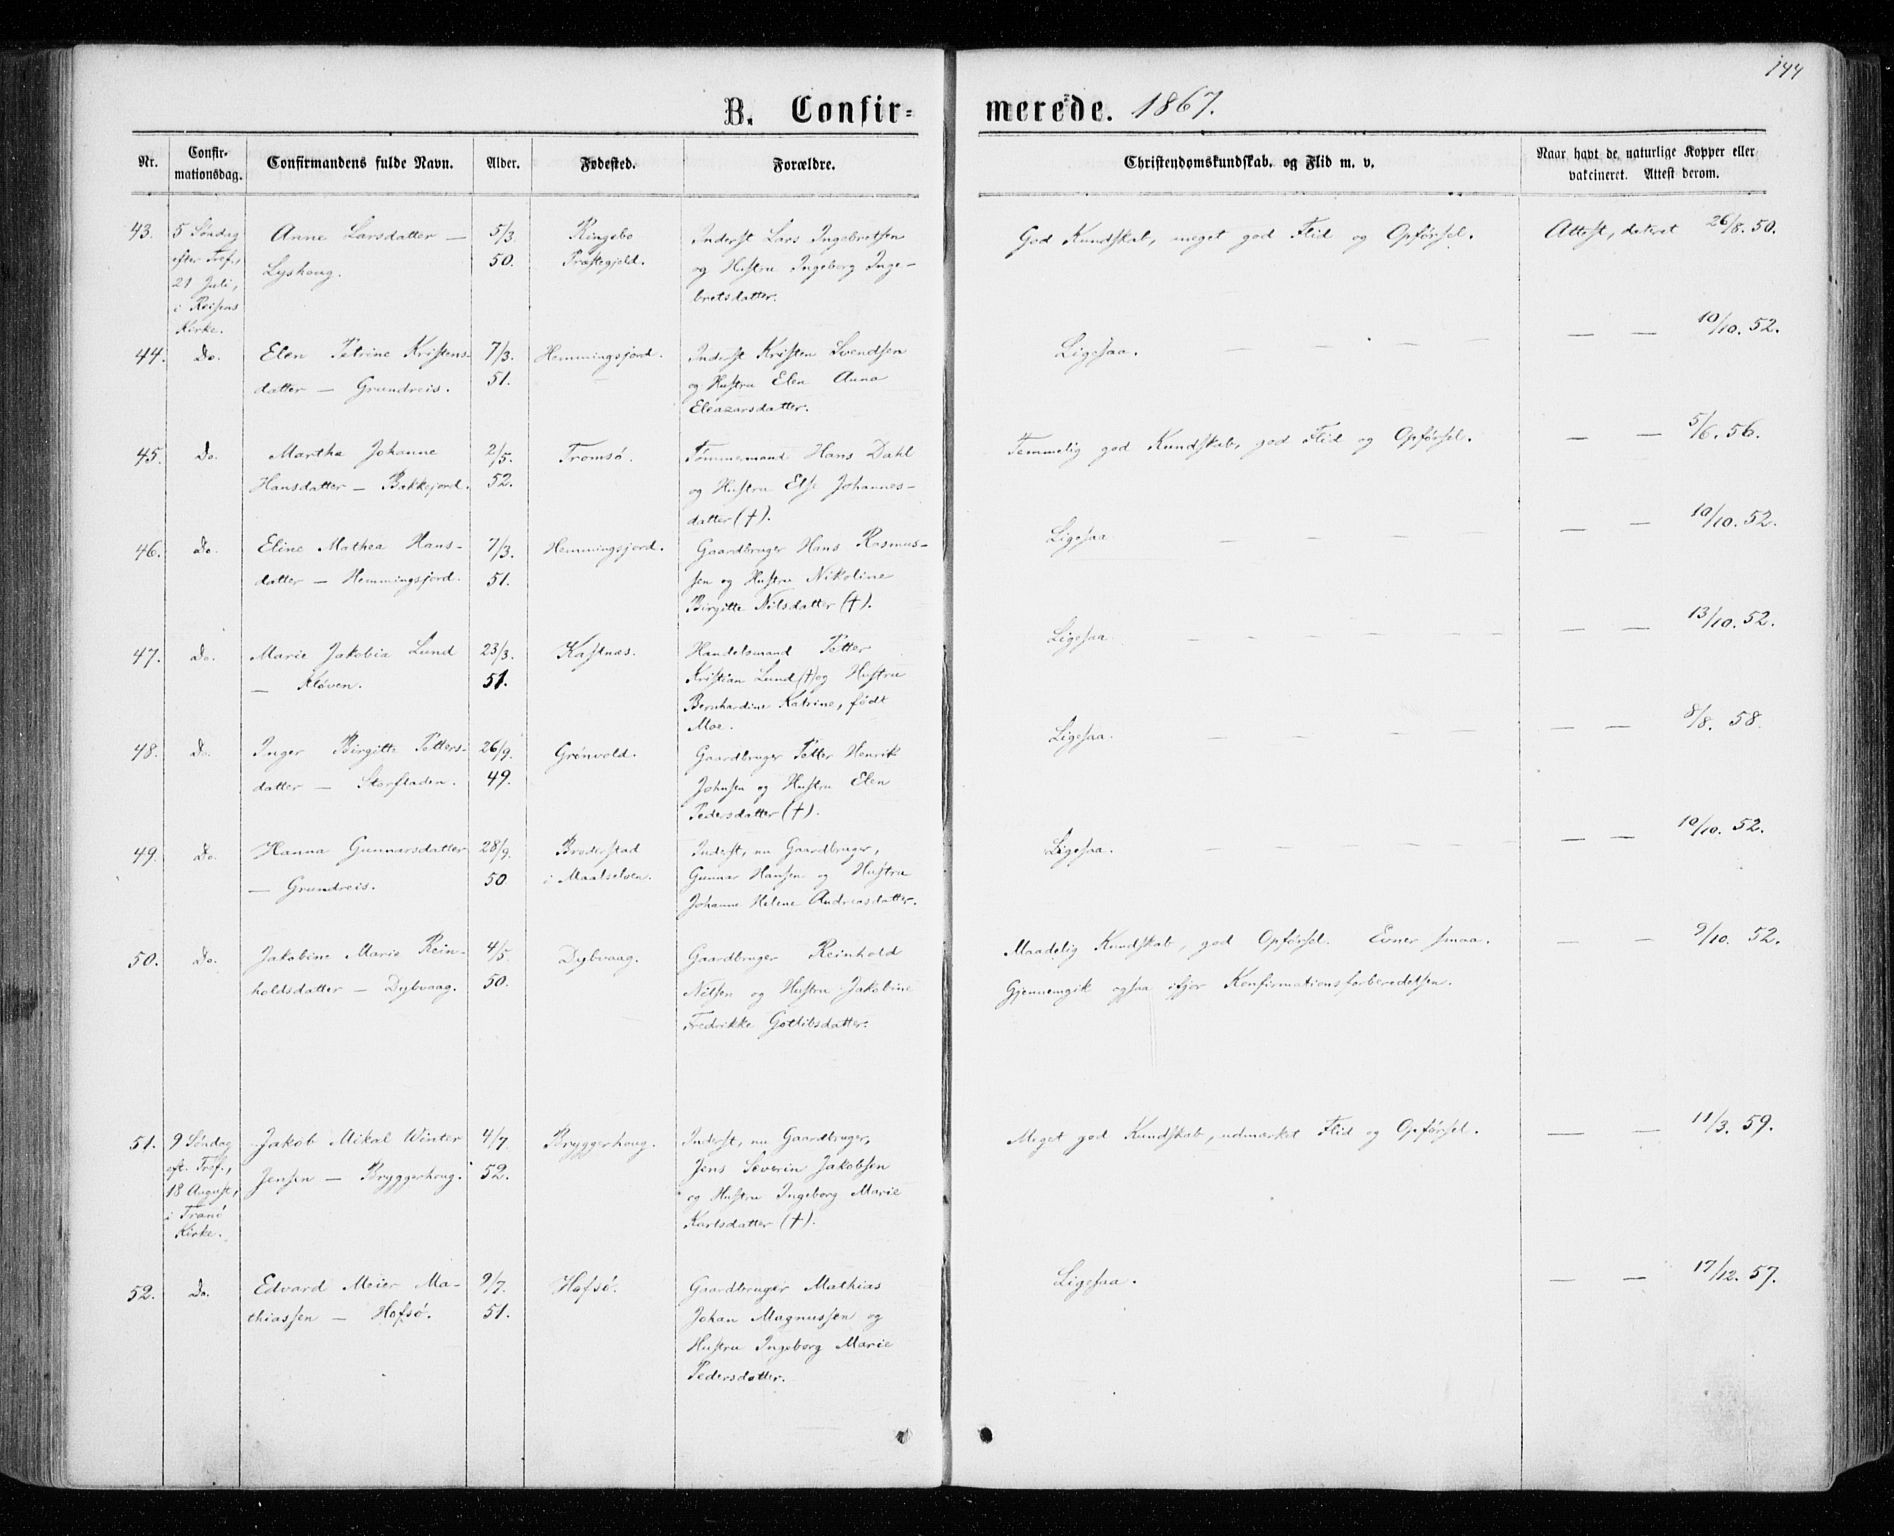 144
B. Confirmerede. 1867.
Nr.
Confirmationsdag.
Confirmandens fulde Navn.
Alder.
Fødested.
Forældre.
Christendomskundskab, og Flid m. v.
Naar havt de naturlige Kopper eller
vakcineret. Attest derom.
43.
5 Søndag
efter Tref.,
21 Juli,
i Reisens
Kirke.
Anne Larsdatter —
Lyshoug.
5/3.
50.
Ringebo
Præstegjeld.
Inderst Lars Ingebretsen
og Hustru Ingeborg Inge-
bretsdatter.
God Kundskab, meget god Flid og Opførsel.
Attest, dateret 26/8. 50.
44.
Do.
Elen Petrine Kristens-
datter — Grundreis.
7/3.
51.
Hemmingsjord.
Inderst Kristen Svendsen
og Hustru Elen Anna
Eleazarsdatter.
Ligesaa. — — — — —
— — 10/10. 52.
45.
Do.
Martha Johanne
Hansdatter — Bakkejord.
2/5.
52.
Tromsø.
Tømmermand Hans Dahl
og Hustru Else Johannes-
datter (†).
Temmelig god Kundskab, god Flid og Opførsel.
— — 5/6. 56.
46.
Do.
Eline Mathea Hans-
datter — Hemmingsjord.
7/3.
51.
Hemmingsjord.
Gaardbruger Hans Rasmus-
sen og Hustru Nikoline
Birgitte Nilsdatter (†).
Ligesaa — — — — —
— — 10/10. 52.
47.
Do.
Marie Jakobia Lund
— Kløven.
23/3.
51.
Kastnæs.
Handelsmand Petter
Kristian Lund (†) og Hustru
Bernhardine Katrine, født
Moe.
Ligesaa — — — — —
— — 13/10. 52.
48.
Do.
Inger Birgitte Petters-
datter — Storsladen.
26/9.
49.
Grønvold.
Gaardbruger Petter Henrik
Johnsen og Hustru Elen
Pedersdatter (†).
Ligesaa. — — — — —
— — 8/8. 58.
49.
Do.
Hanna Gunnarsdatter
— Grundreis.
28/9.
50
Broderstad
i Maalselven.
Inderst, nu Gaardbruger,
Gunnar Hansen og Hustru
Johanne Helene Andreasdatter.
Ligesaa. — — — — —
— — 10/10. 52.
50.
Do.
Jakobine Marie Rein-
holdsdatter — Dybvaag.
4/5.
50.
Dybvaag.
Gaardbruger Reinhold
Nilsen og Hustru Jakobine
Fredrikke Gotlibsdatter.
Maadelig Kundskab, god Opførsel. Evner smaa.
Gjennemgik ogsaa ifjor Konfirmationsforberedelsen.
— — 9/10. 52.
51.
9 Søndag
eft. Tref.,
18 August,
i Tranø
Kirke.
Jakob Mikal Winter
Jensen — Bryggerhoug.
4/7
52.
Bryggerhoug.
Inderst, nu Gaardbruger,
Jens Severin Jakobsen
og Hustru Ingeborg Marie
Karlsdatter (†).
Meget god Kundskab, udmærket Flid og Opførsel.
— — 11/3. 59.
52.
Do.
Edvard Meier Ma-
thiassen — Hofsø.
9/7.
51.
Hofsø.
Gaardbruger Mathias
Johan Magnussen og
Hustru Ingeborg Marie
Pedersdatter.
Ligesaa.
— — 17/12. 57.